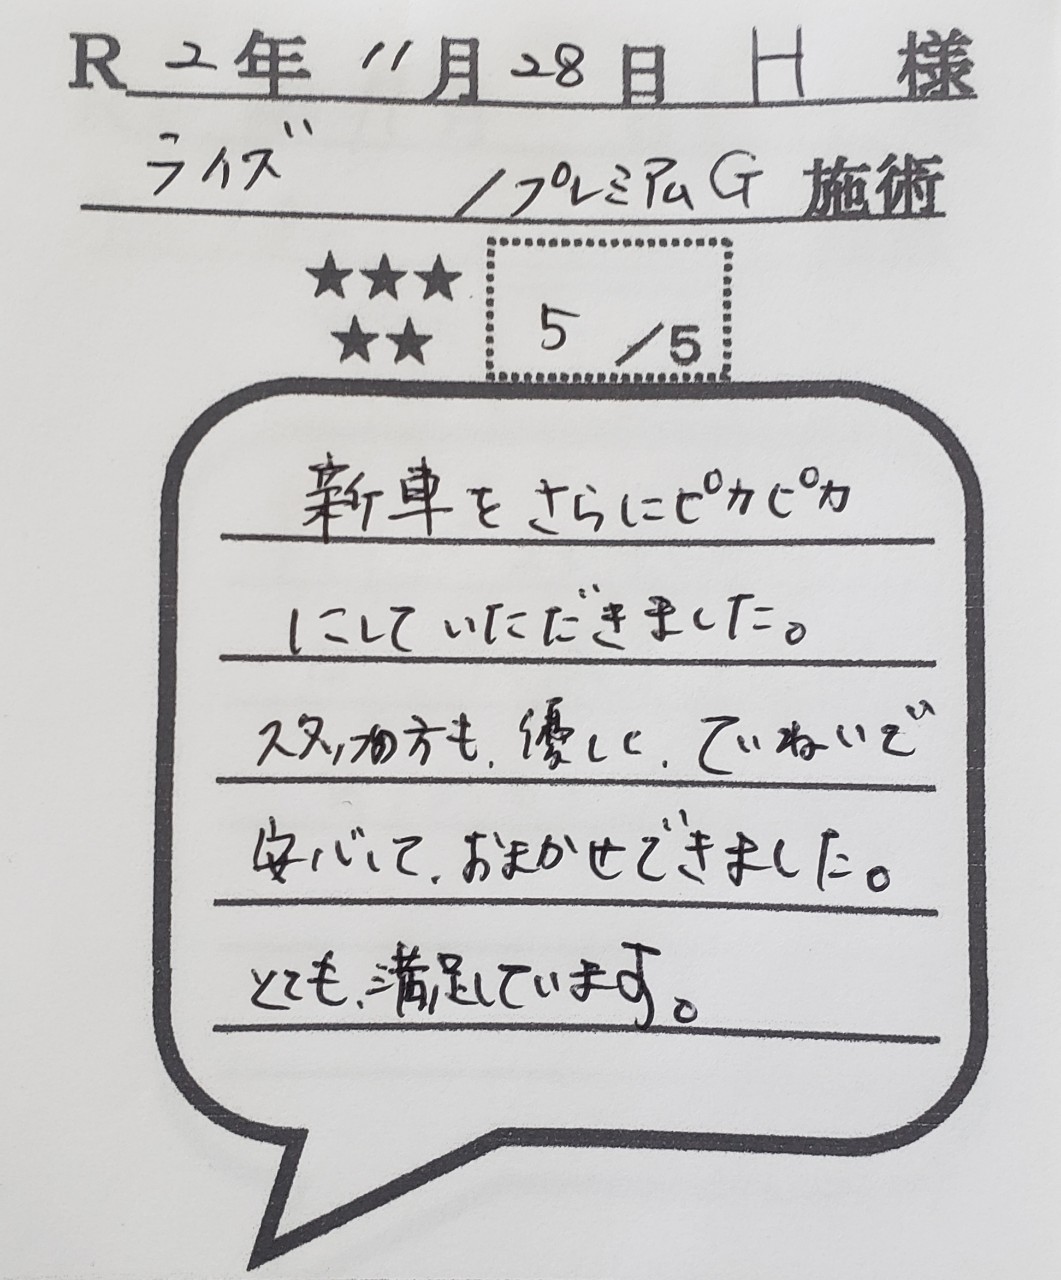 R 2年 11月 28日 H 様
ライズ /プレミアムG 施術
★★★
★★
5 /5
新車をさらにピカピカ
にしていただきました。
スタッフの方も、優しく、ていねいで
安心して、おまかせできました。
とても、満足しています。